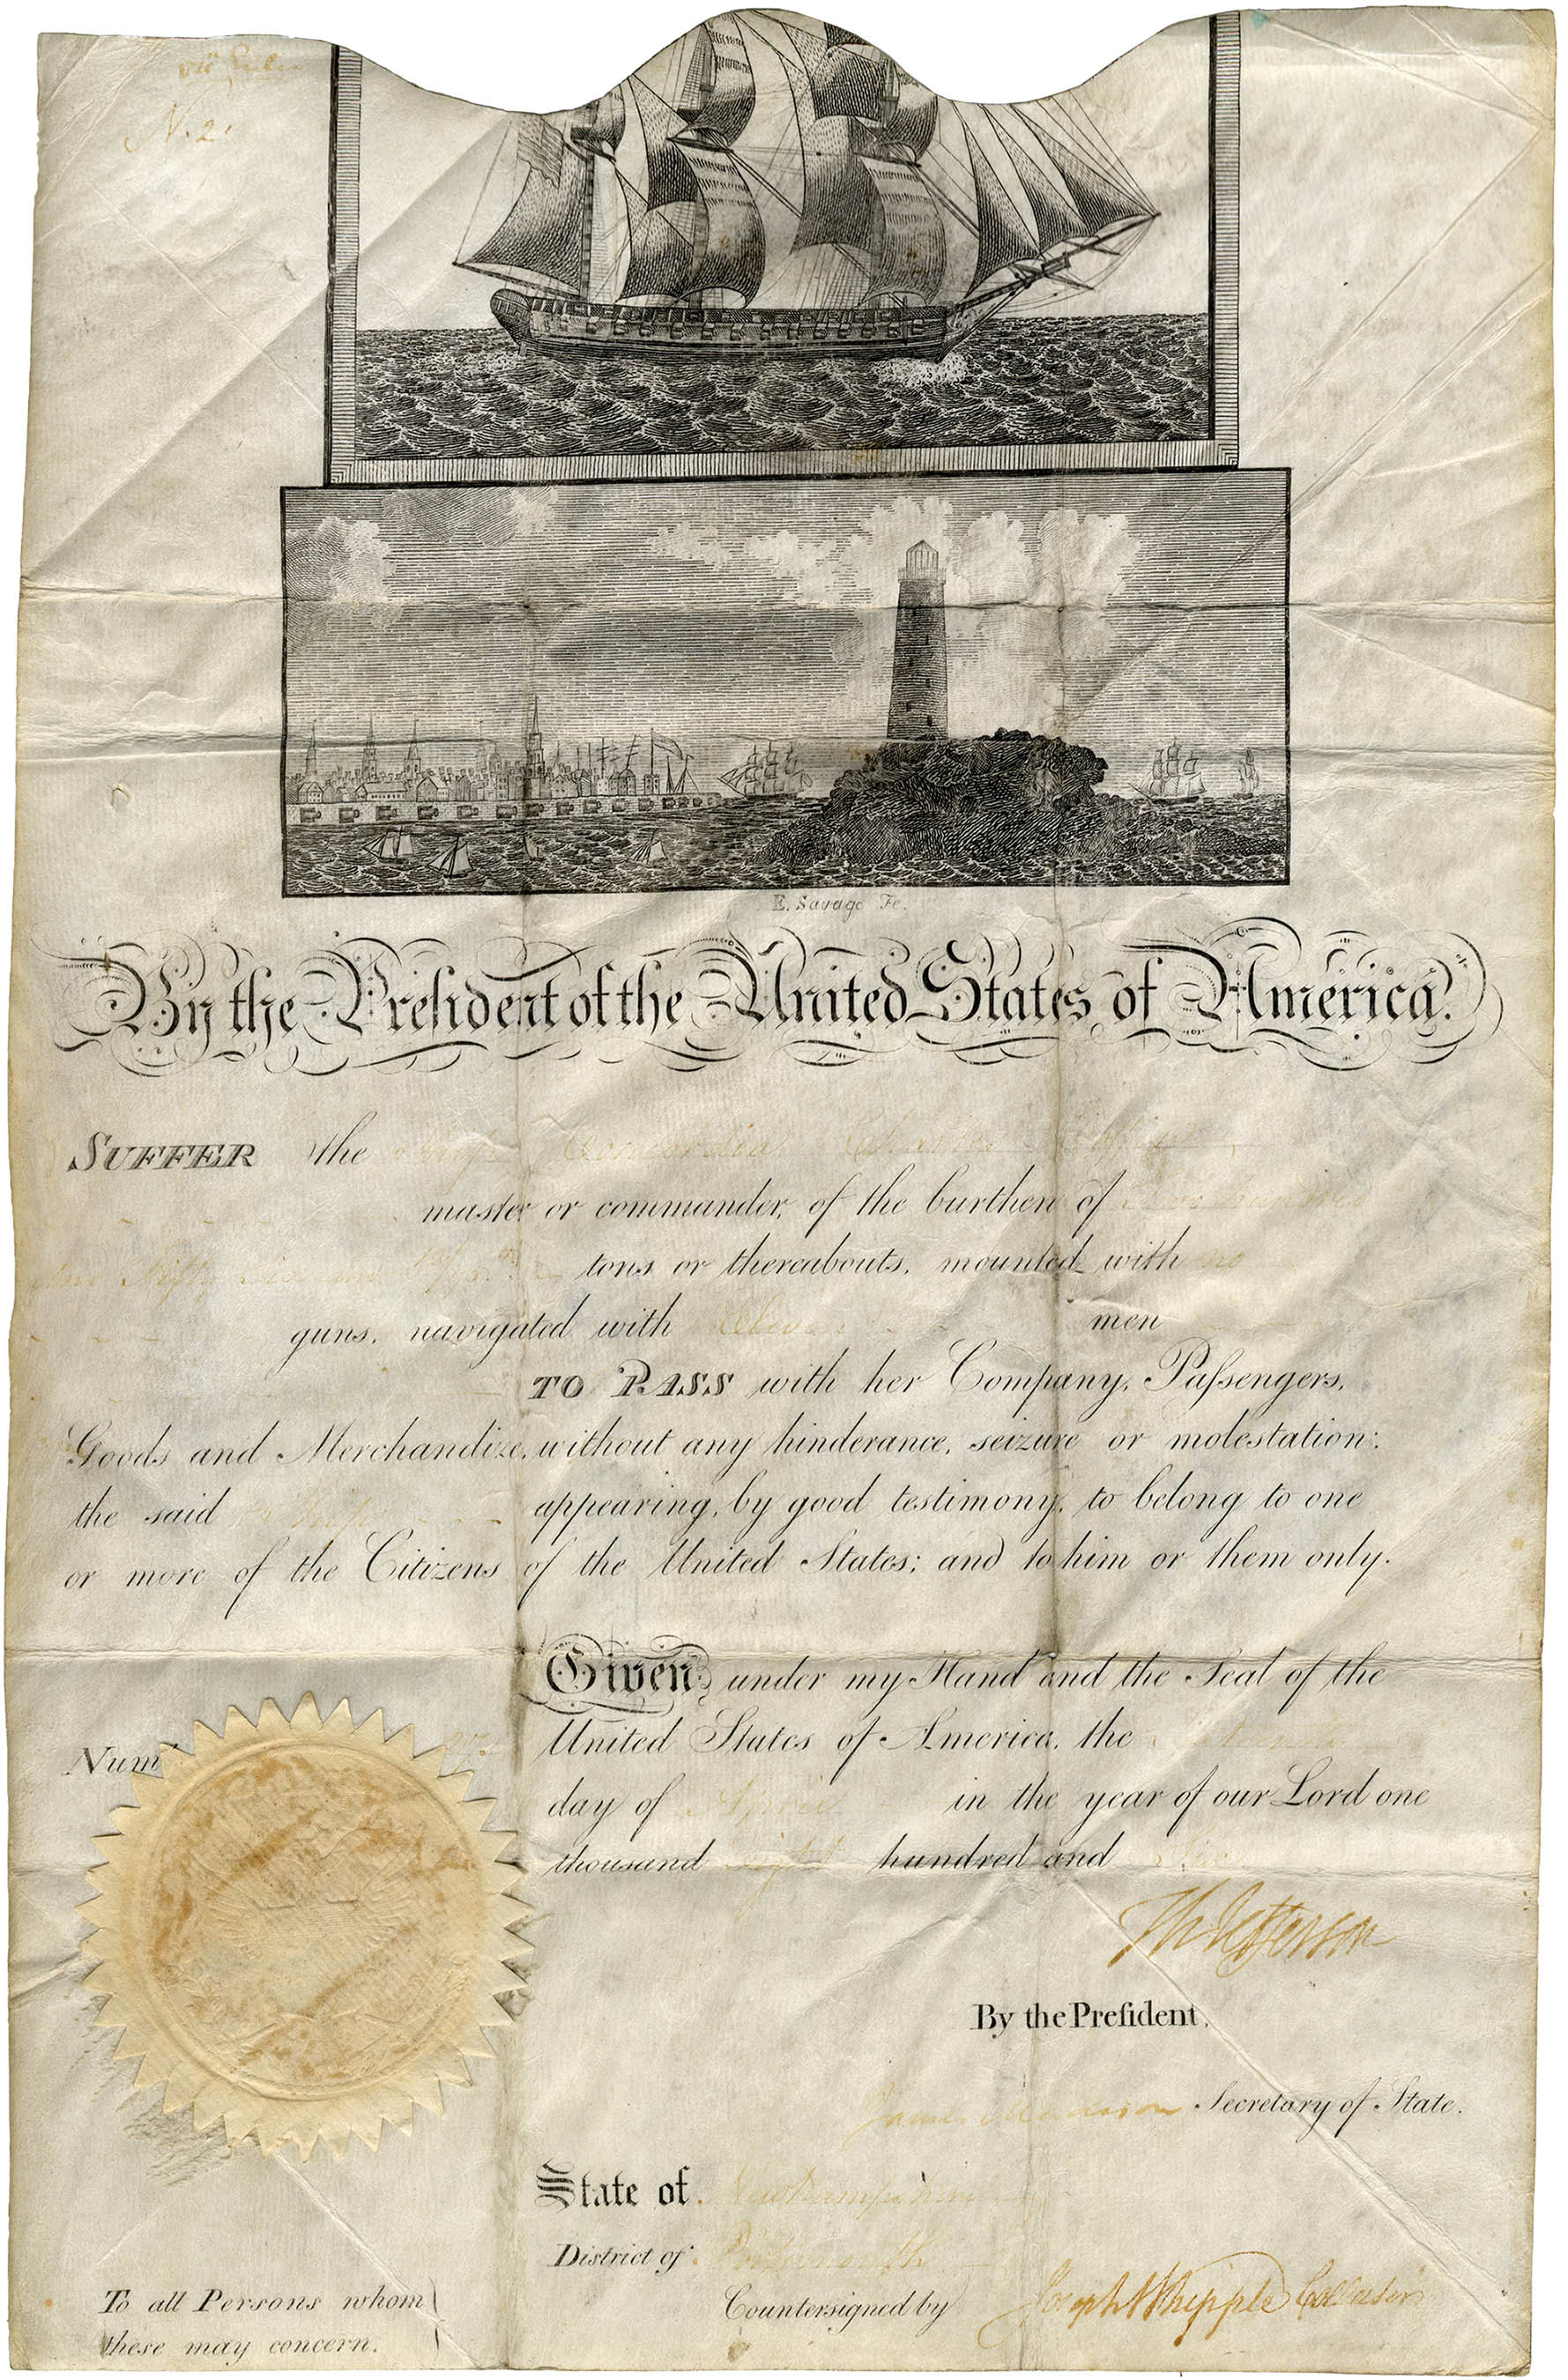 N. 2
E. Savage Fe.
By the Preſident of the United States of America.
SUFFER the Ship Concordia
master or commander, of the burthen of two hundred
Fifty tons or thereabouts, mounted with no
guns, navigated with Eleven men
TO PASS with her Company, Paſsengers,
Goods and Merchandize, without any hinderance, seizure or molestation:
the said Ship appearing, by good testimony, to belong to one
or more of the Citizens of the United States; and to him or them only.
Given under my Hand and the Seal of the
United States of America, the
Num
day of April in the year of our Lord one
thousand eight hundred and
Th Jefferson
By the Preſident,
James Madison Secretary of State.
State of New Hampshire
District of Portsmouth
Countersigned by Joseph Whipple Collector
To all Persons whom
these may concern.